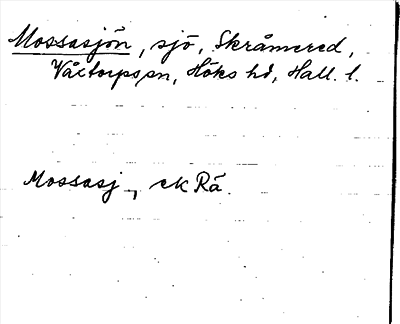 Mossasjön, sjö, Skråmered,
Våxtorps sn, Höks hd, Hall. l.
Mossasj-, ek Rä.